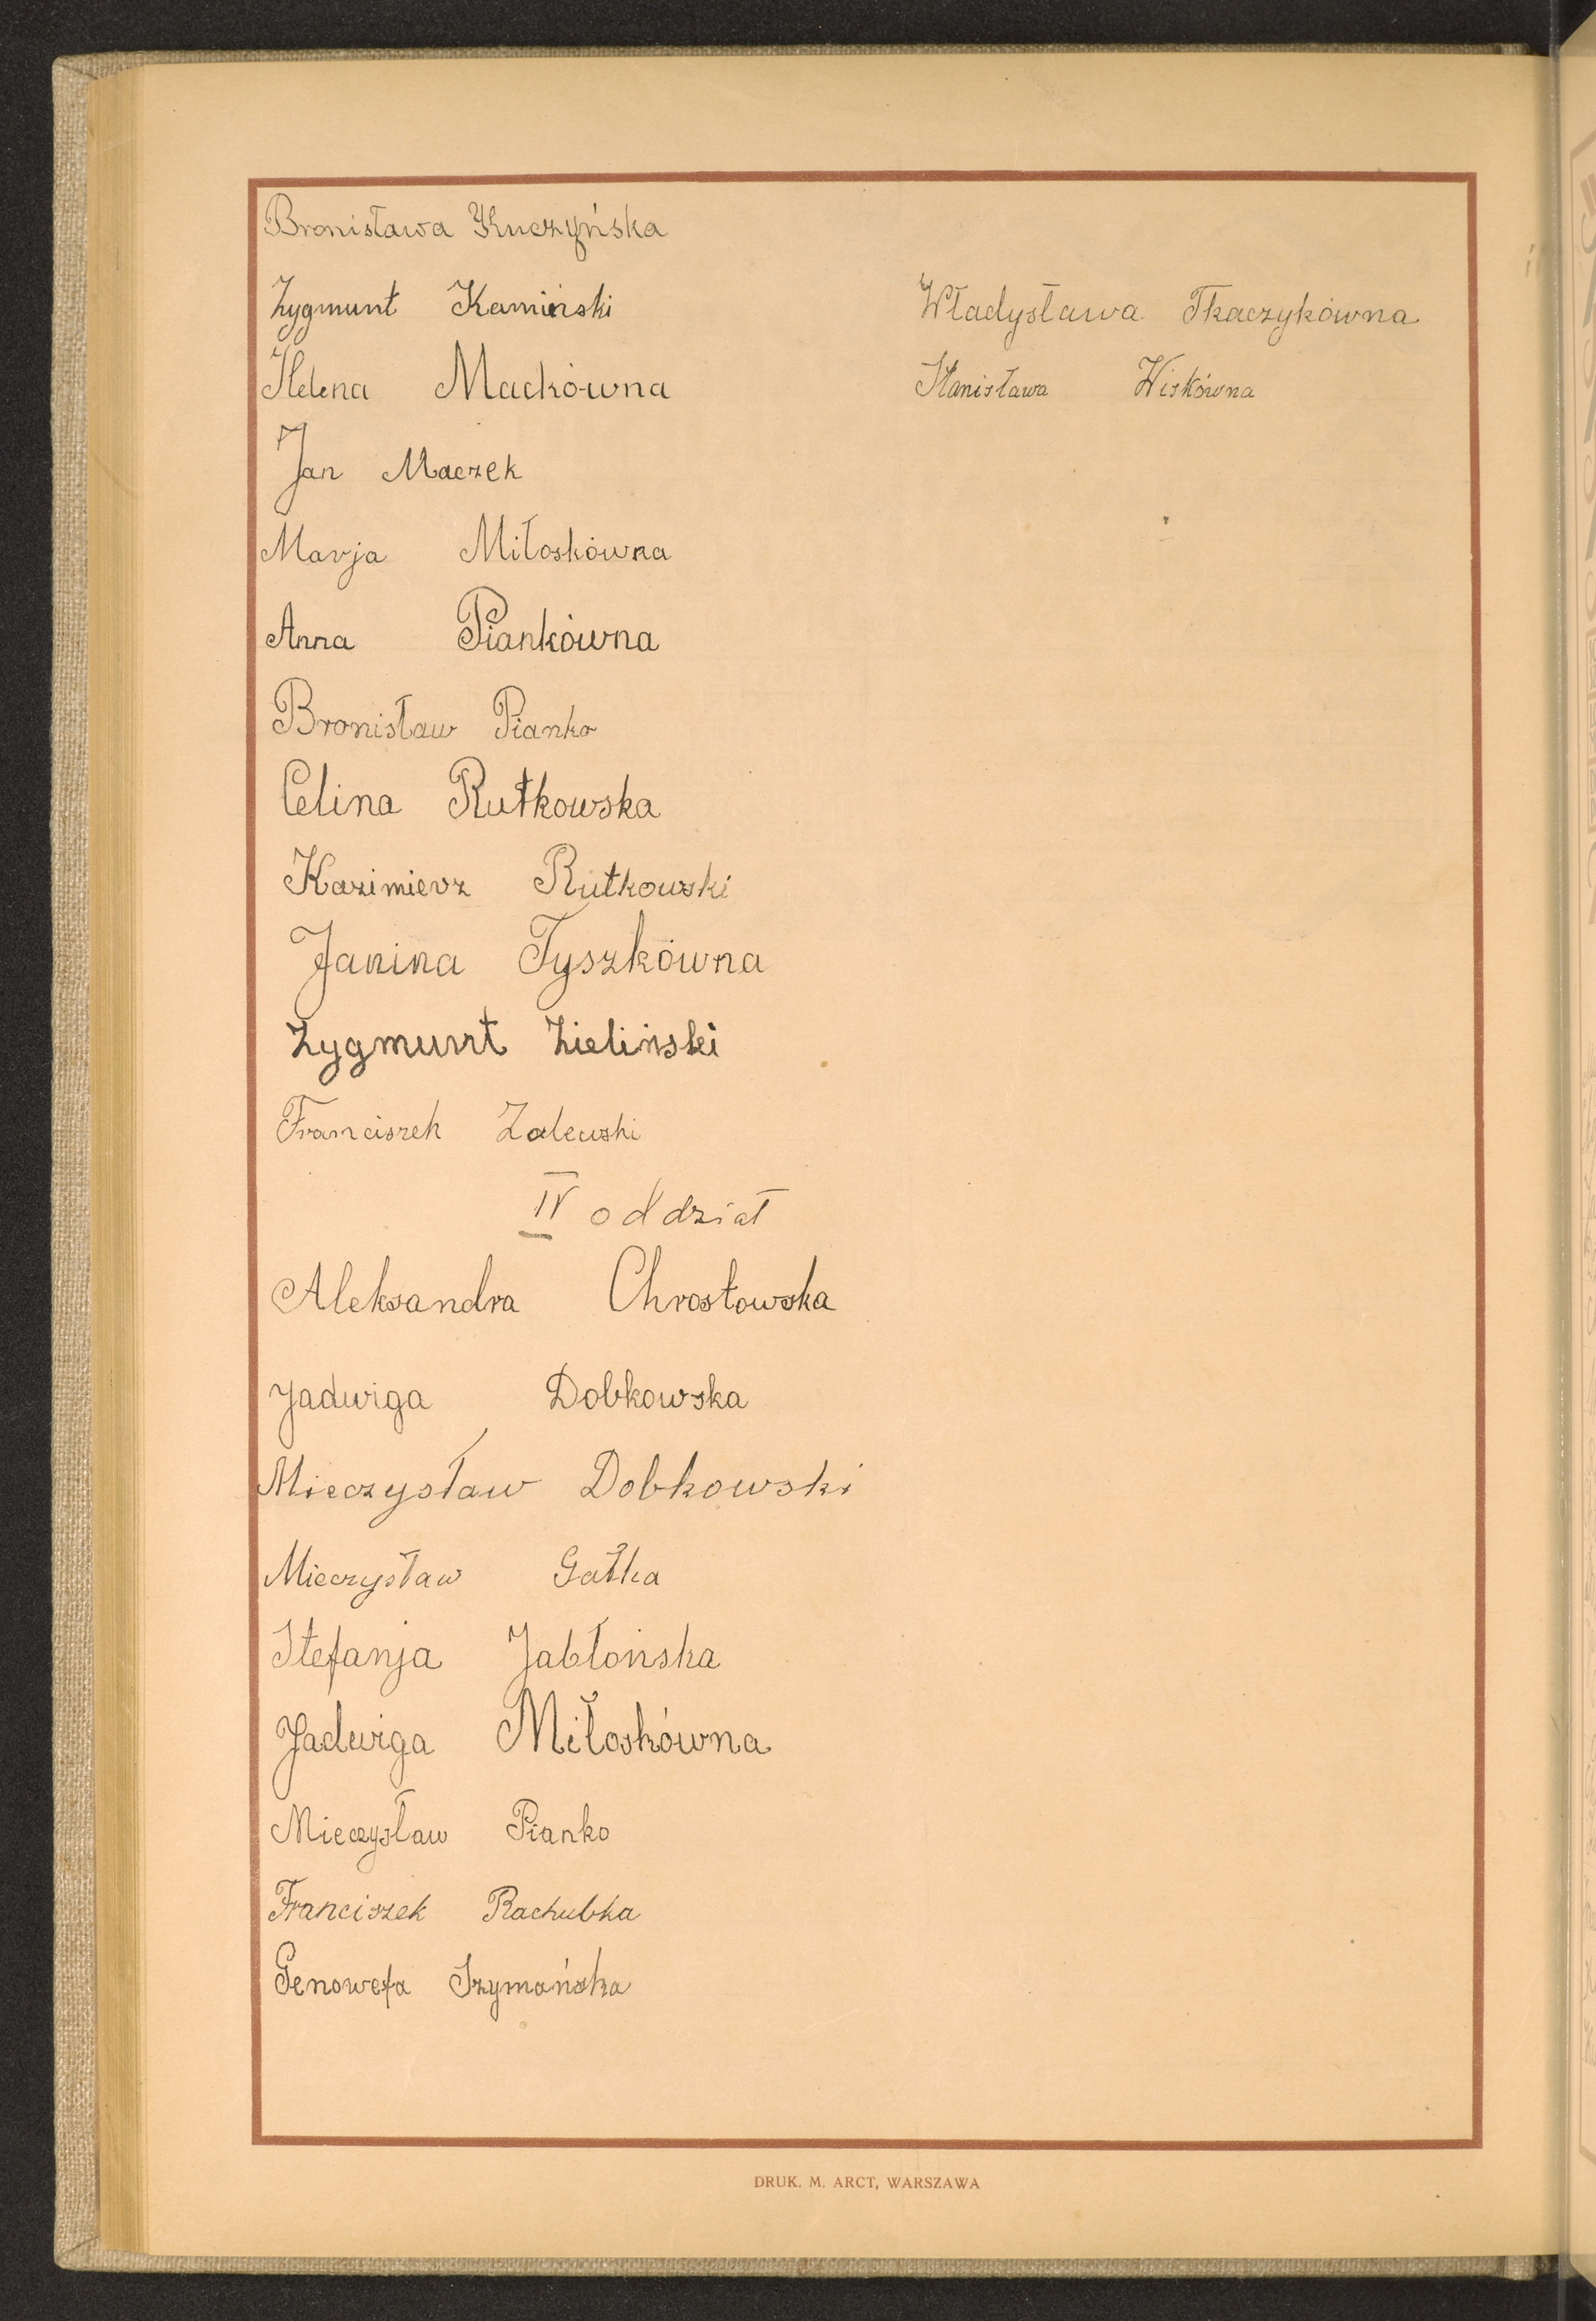 Bronisława Kuczyńska
Zygmunt Kamiński
Helena Mackówna
Jan Maczek
Marja Miłoskówna
Anna Piankówna
Bronisław Pianko
Celina Rutkowska
Kazimierz Rutkowski
Janina Tyszkówna
Zygmunt Zieliński
Franciszek Zalewski
IV oddział
Aleksandra Chrostowska
Jadwiga Dobkowska
Mieczysław Dobkowski
Mieczysław Gałka
Stefanja Jabłońska
Jadwiga Miłoskówna
Mieczysław Pianko
Franciszek Rachubka
Genowefa Szymańska
Władysława Tkaczykówna
Stanisława Wiskówna
DRUK. M. ARCT, WARSZAWA